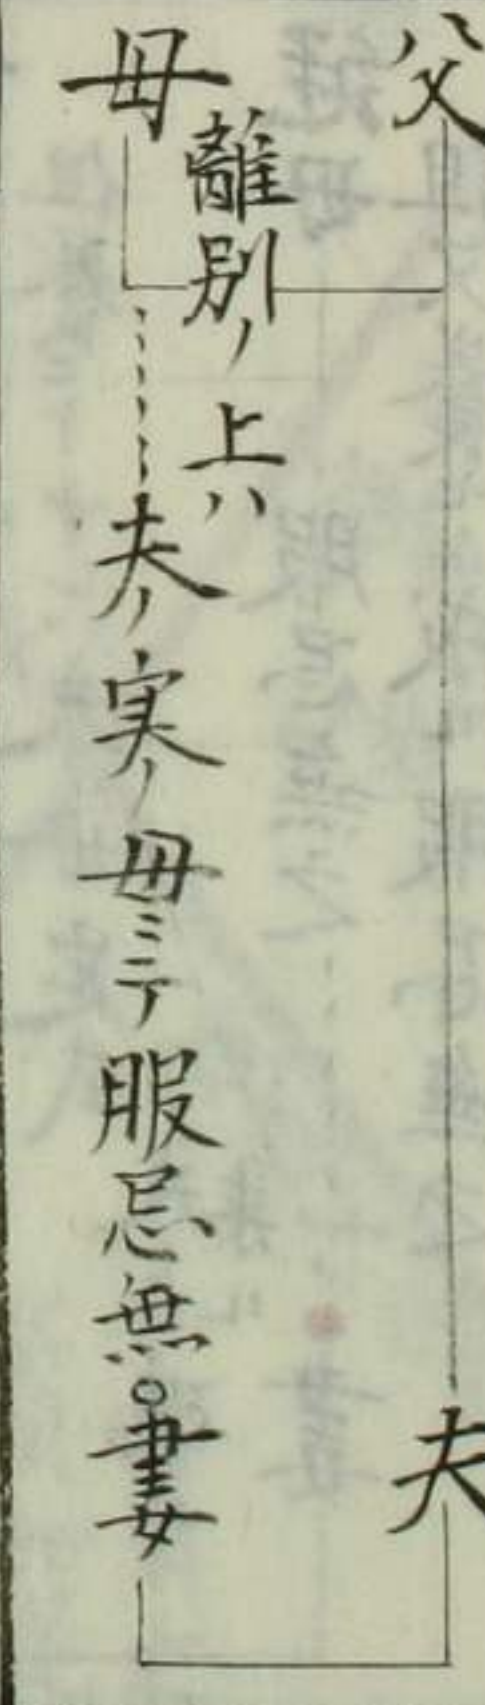 父
夫
母
離別ノ上ハ
夫ノ実ノ母ニテ服忌無○妻